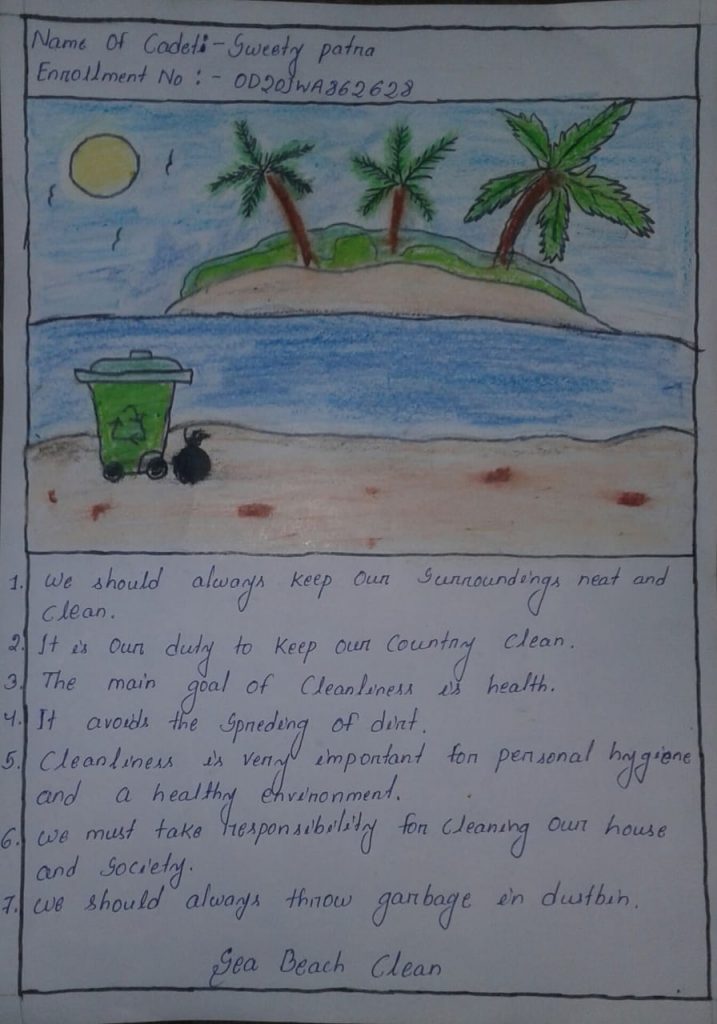 Name Of Cadet:- Sweety patra
Enrollment No :- OD20SWA862628
1. We should always keep our surroundings neat and
clean.
2. It is our duty to keep our country clean.
3. The main goal of cleanliness is health.
4. It avoids the spreding of dirt.
5. Cleanliness is very important for personal hygiene
and a healthy environment.
6. We must take responsibility for cleaning our house
and society.
7. We should always throw garbage in dustbin.
Sea Beach Clean